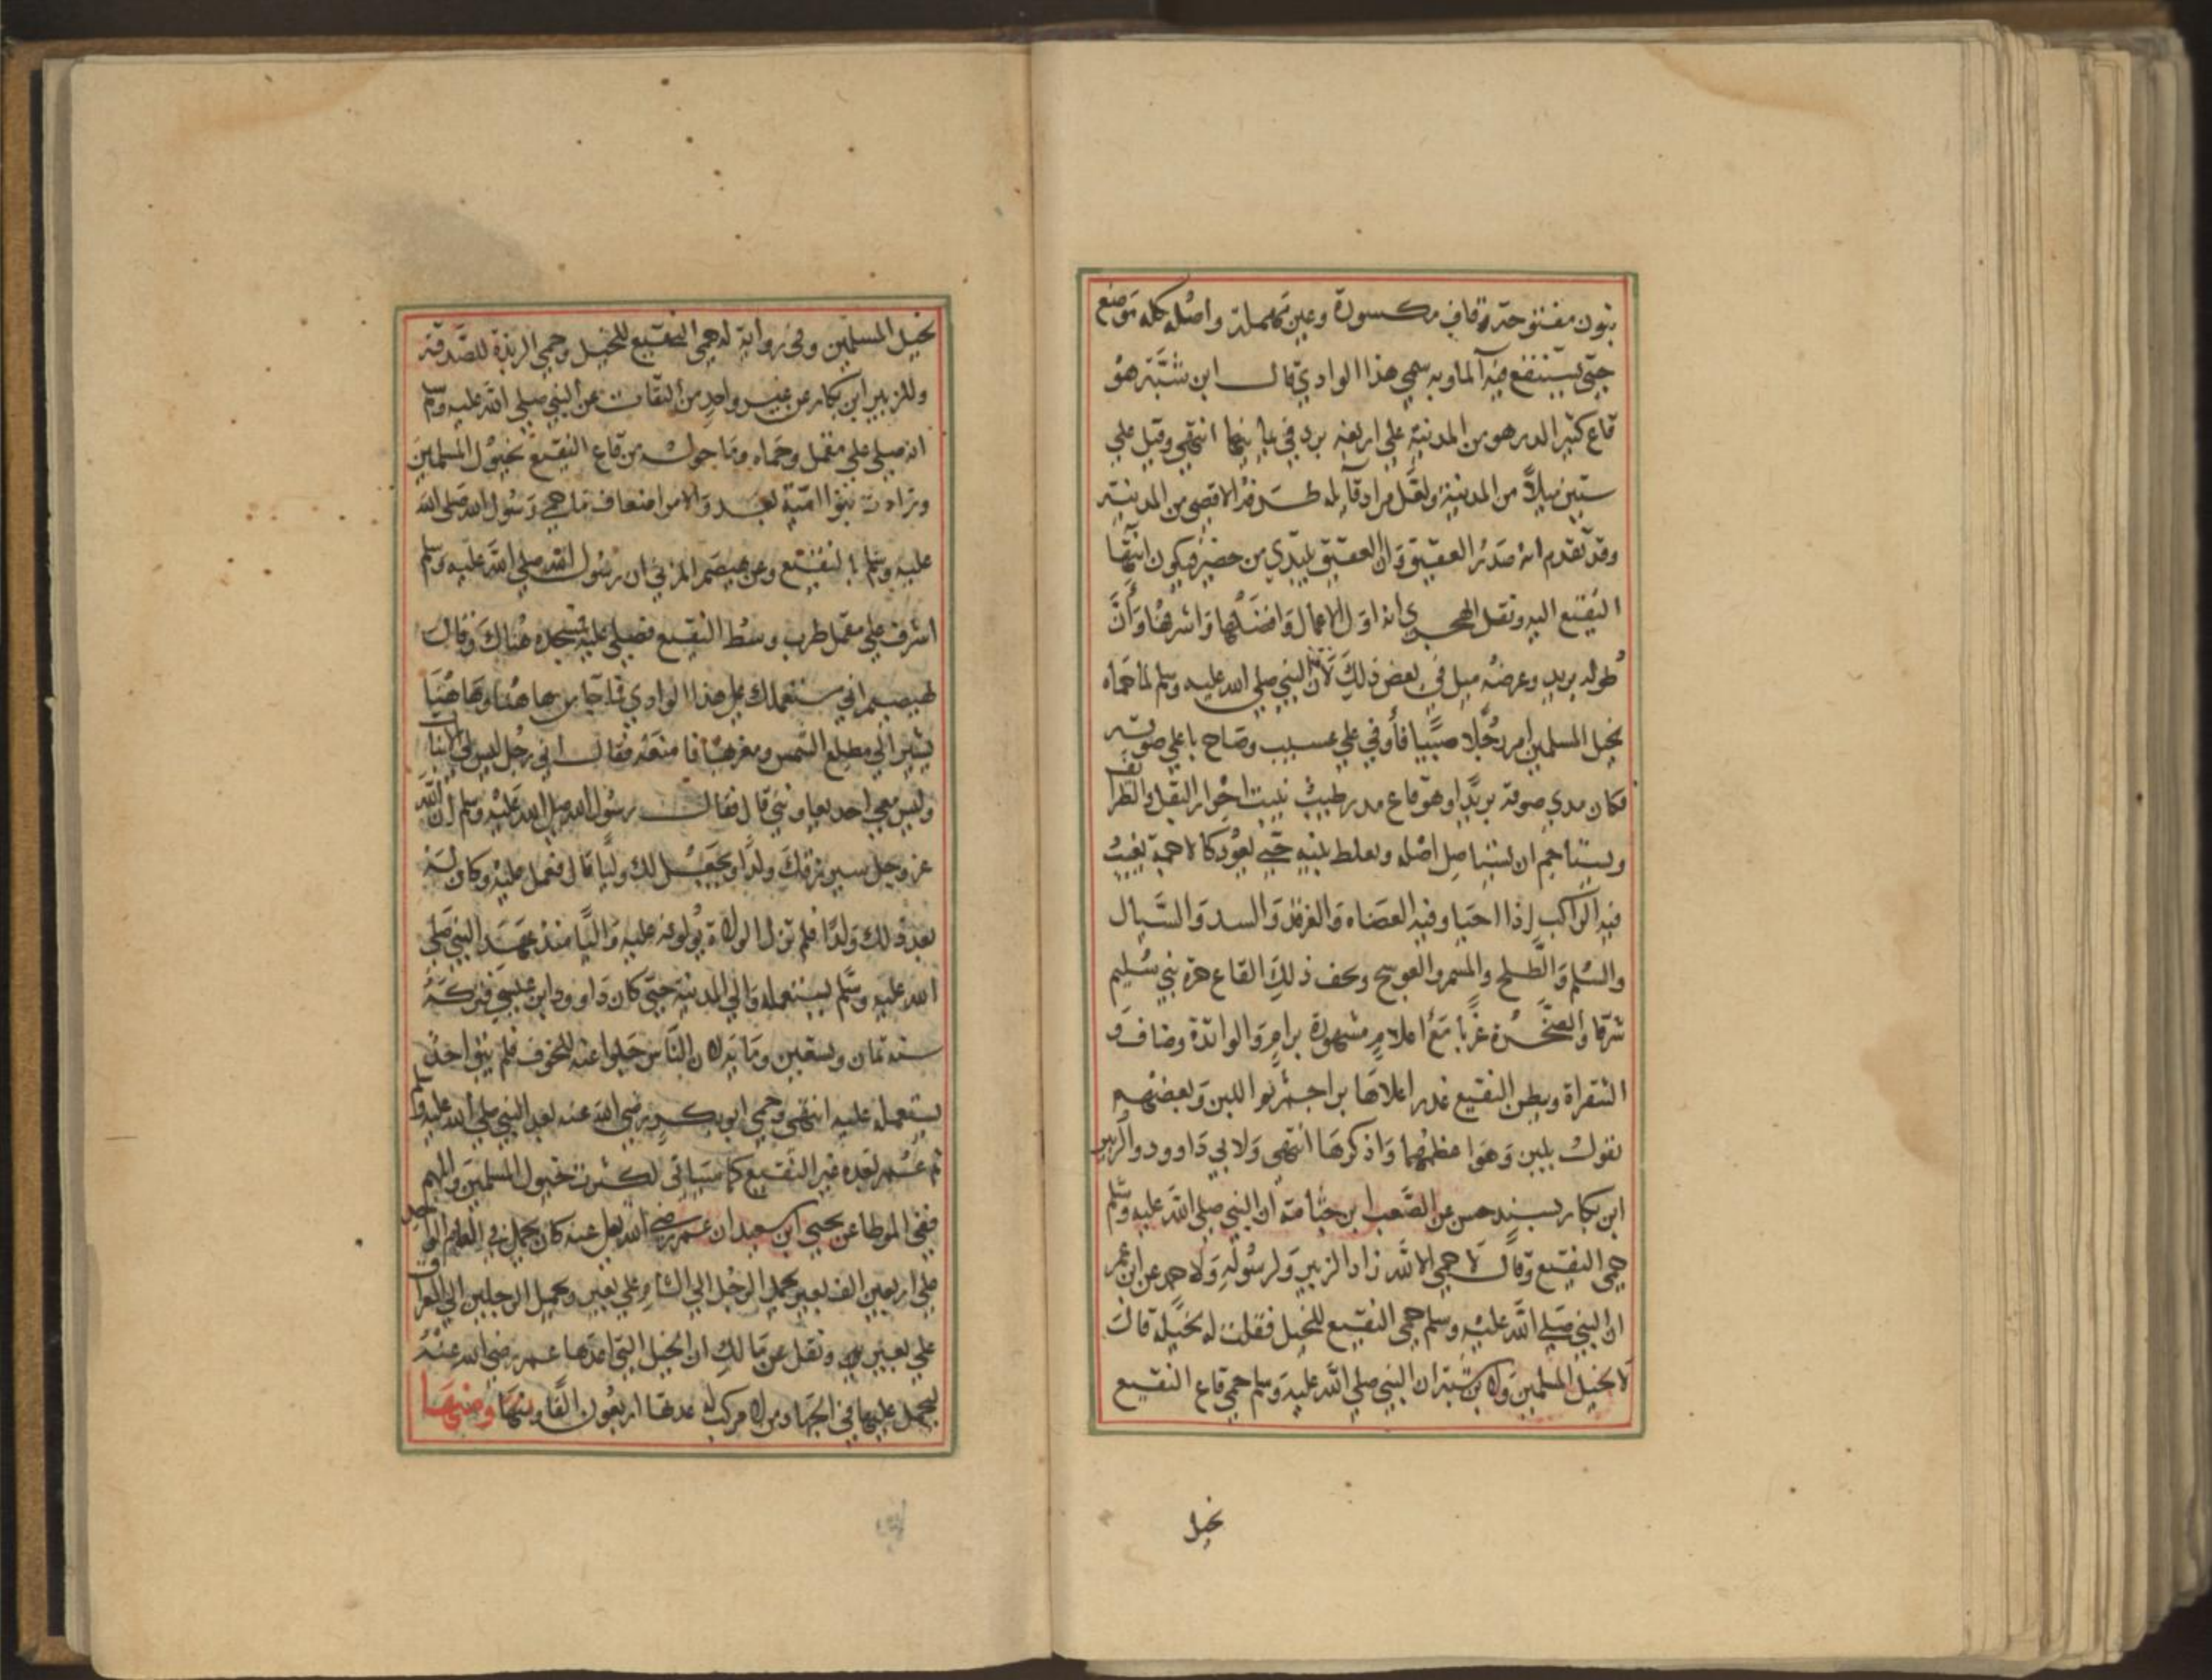 بنون مفتوحة وقاف مكسورة وعين مهملة واصله كله موضع
حتى يستنقع فيه الماوبه سمي هذا الوادي قال ابن شبة هو
قاع كثير الدر هو من المدينة علي اربعة برد في يمانيها انتهي وقيل علي
ستين ميلا من المدينة ولعل مراد قايله طرفه الاقصي من المدينة
وقد تقدم انه صدر العقيق وان العقيق يبتدي من حضير فيكون انتها
النقيع اليه ونقل الهجري انه اول الاعمال وافضلها واشرفها وان
طوله بريد وعرضه ميل في بعض ذلك لان النبي صلي الله عليه وسلم لما حماه
لخيل المسلمين امر رجلا صيتا فأوفي علي عسيب وصاح باعلي صوته
فكان مدي صوته بريدا وهو قاع مدر طيب ينبت احرار البقل والطرايف
ويستاجم ان يستاصل اصله ويغلظ نبته حتي يعود كالاجمة يغيب
فيه الراكب اذا احيا وفيه العضاه والغرقد والسدر والسيال
والسلم والطلح والسمر والعوسج ويحف ذلك القاع حرة بني سليم
شرقا والصخرة غربا مع اعلام مشهورة برام والوائدة وضاف و
الشقراة وببطن النقيع غدر اعلاها براجم ثم يلبن وبعضهم
يقول يلبن وهو اعظمها واذكرها انتهي ولابي داوود والزبير
ابن بكار بسند حسن عن الصعب ابن جثامة ان النبي صلي الله عليه وسلم
حمي النقيع وقال لا حمي الا لله زاد الزبير ولرسوله ولاحمد عن ابن عمر
ان النبي صلي الله عليه وسلم حمي النقيع للخيل فقلت له لخيله قال
لا لخيل المسلمين ولابن شبة ان النبي صلي الله عليه وسلم حمي قاع النقيع
لخيل
لخيل المسلمين وفي رواية له حمي النقيع للخيل وحمي الربذة للصدقة
وللزبير ابن بكار عن غير واحد من الثقات عن النبي صلي الله عليه وسلم
انه صلي علي مقمل وحماه وما حوله من قاع النقيع لخيول المسلمين
وزادت بنوا امية بعد والامرا اضعاف ما حمي رسول الله صلي الله
عليه وسلم بالنقيع وعن هيصم المزني ان رسول الله صلي الله عليه وسلم
اشرف علي مقمل ظرب وسط النقيع فصلي عليه فمسجده هناك وقال
لهيصم اني مستعملك علي هذا الوادي فما جا من هاهنا وهاهنا
يشير الي مطلع الشمس ومغربها فامنعه فقال اني رجل ليس لي الا بنات
وليس معي احد يعاونني قال فقال رسول الله صلي الله عليه وسلم ان الله
عز وجل سيرزقك ولدا ويجعل لك وليا قال فعمل عليه وكان له
بعد ذلك ولدا فلم تزل الولاة يولونه عليه واليا منذ عهد النبي صلي
الله عليه وسلم يستعمله والي المدينة حتي كان داوود ابن عيسي فتركه
سنة ثمان وتسعين وما ية لان الناس جلوا عنه للخوف فلم يبق احد
يستعمله عليه انتهي وحمي ابوبكر رضي الله عنه بعد النبي صلي الله عليه وسلم
ثم عمر بعده غير النقيع كما سياتي لكثرت خيول المسلمين وابلهم
ففي الموطا عن يحيي ابن سعيد ان عمر رضي الله تعالي عنه كان يحمل في العام الواحد
علي اربعين الف بعير يحمل الرجل الي الشام علي بعير ويحمل الرجلين الي العراق
علي بعير ونقل عن مالك ان الخيل التي اعدها عمر رضي الله عنه
ليحمل عليها في الجهاد من لا مركب له عدتها اربعون الفا ومنها